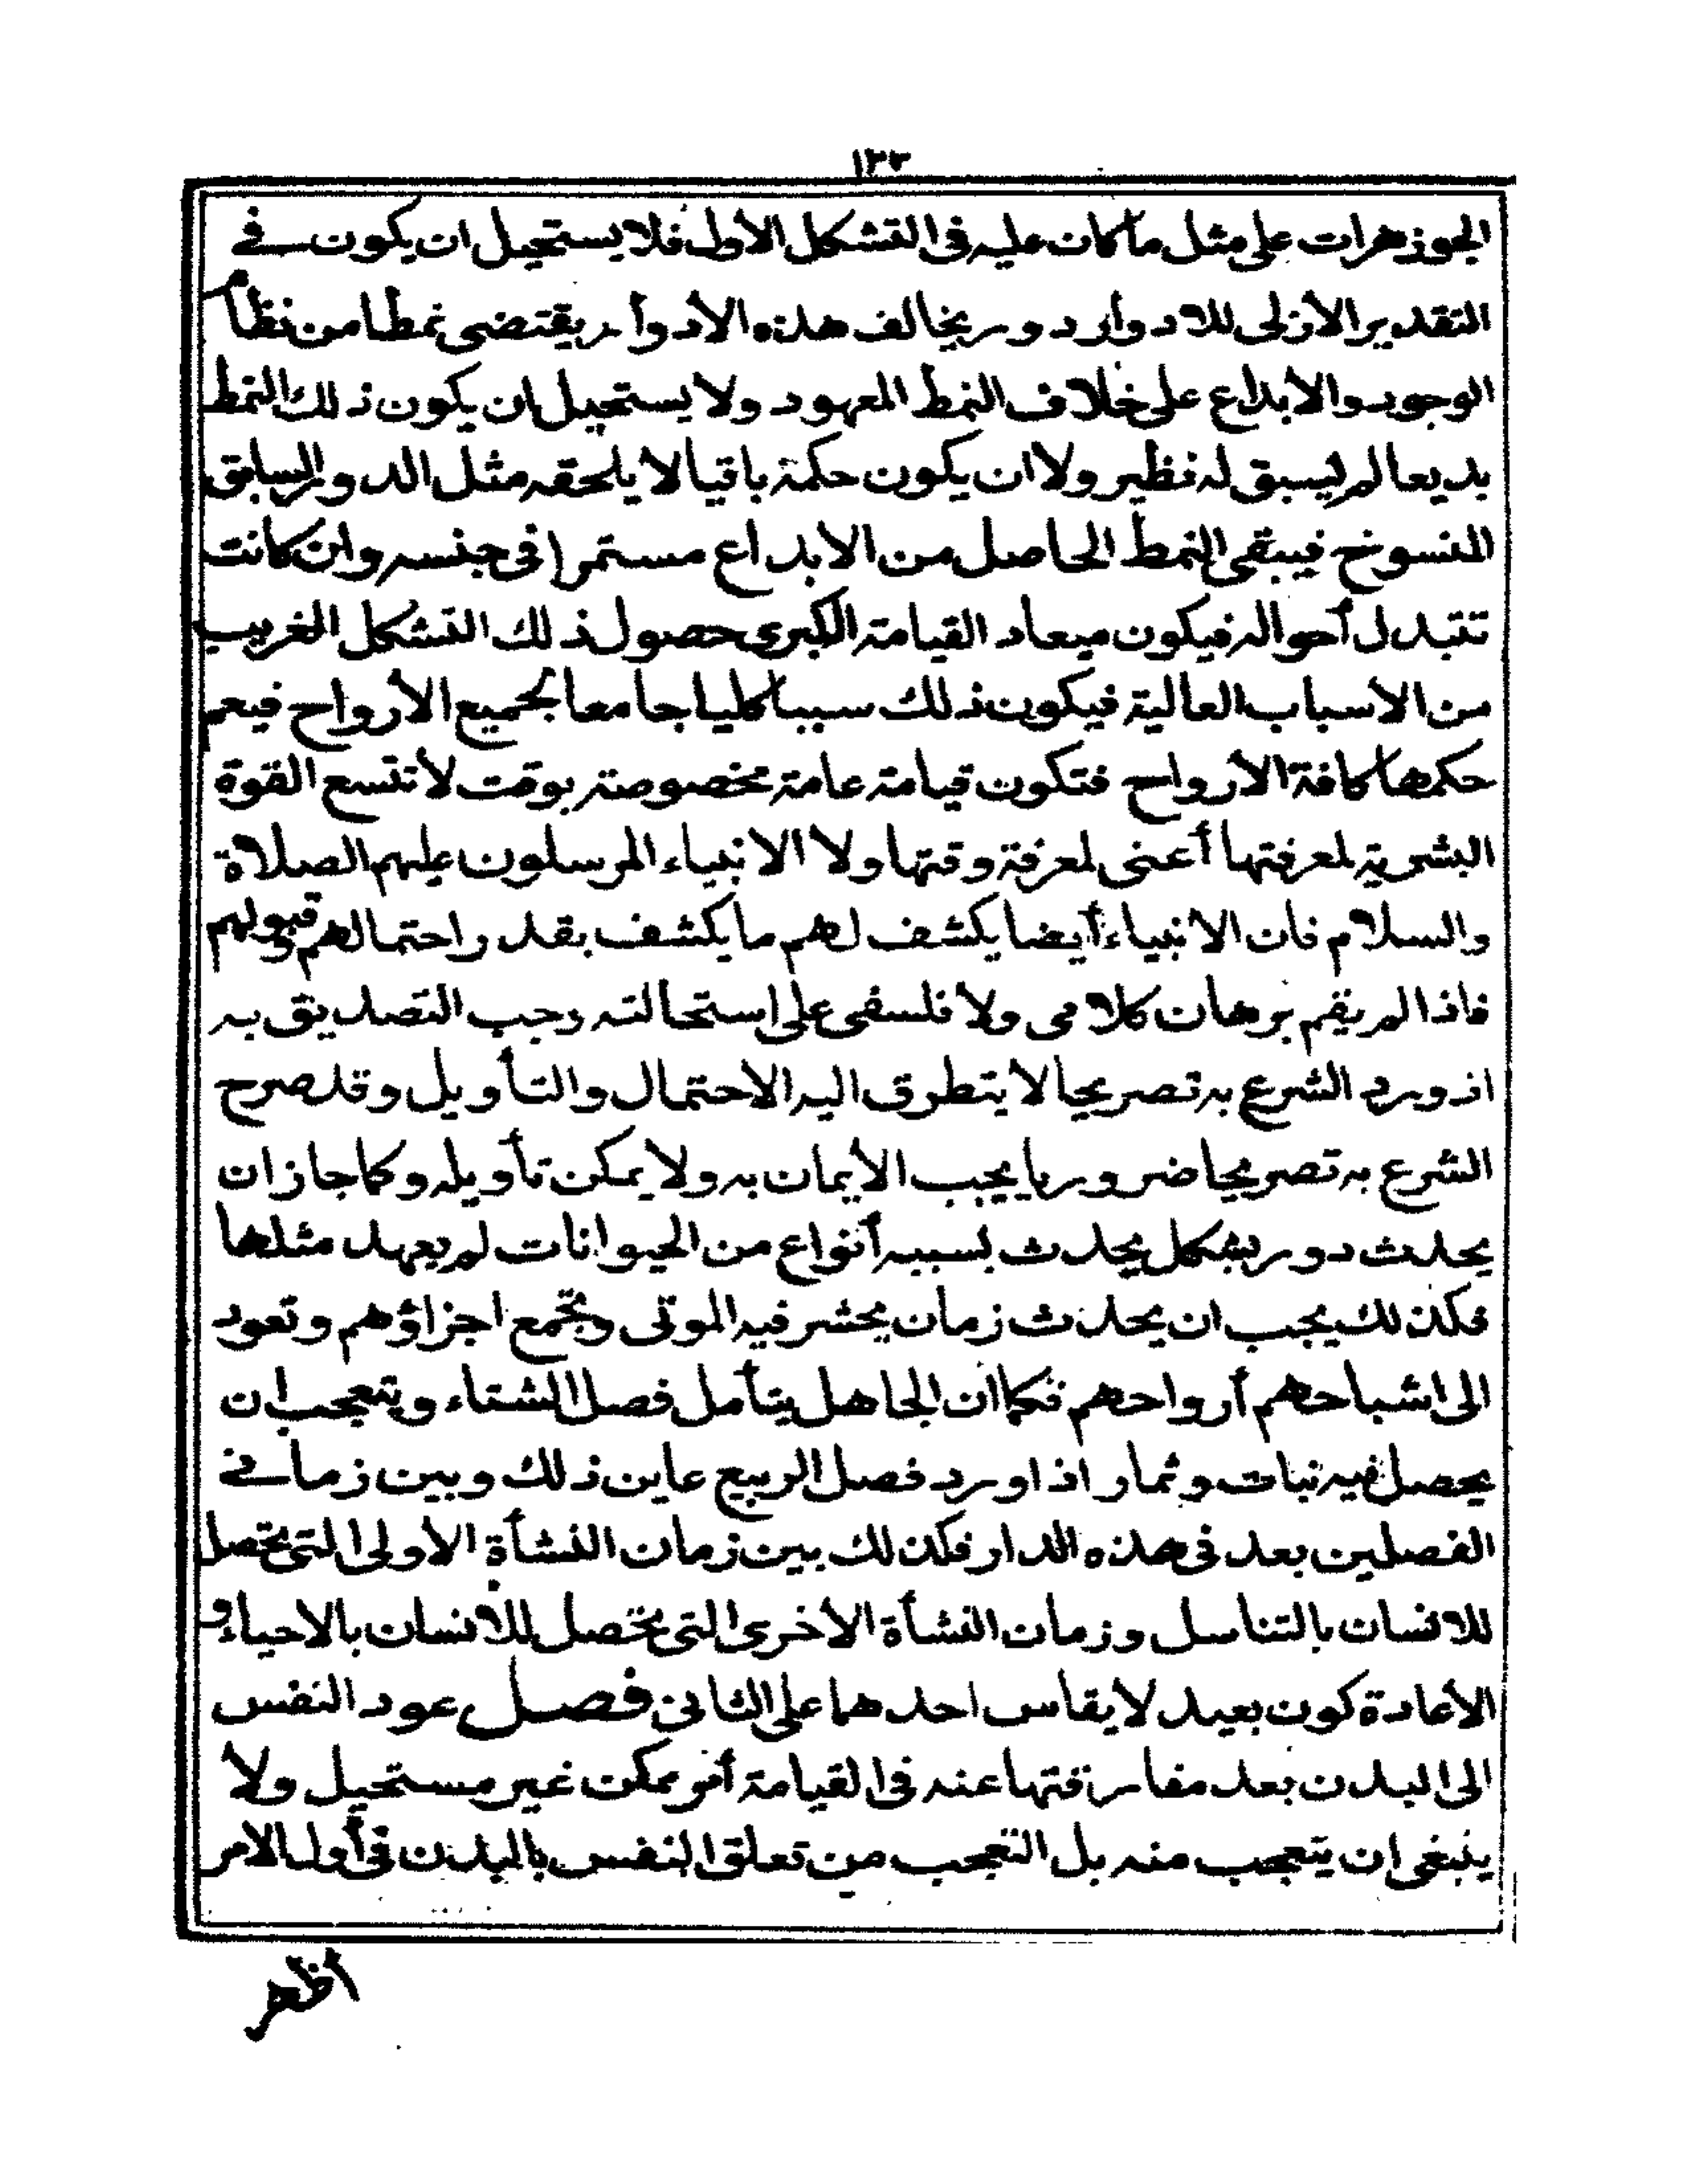 ١٣٣
الجوزهرات على مثل ما كان عليه فى التشكل الأول فلا يستحيل ان يكون فے
التقدير الأزلى للادوار دور يخالف هذه الأدوار يقتضى نمطا من نظام
الوجود والأبداع على خلاف النمط المعهود ولا يستحيل ان يكون ذلك النمط
بديعا لم يسبق له نظير ولا ان يكون حكمة باقيا لا يلحقه مثل الدور السابق
المنسوخ فيبقى النمط الحاصل من الابداع مستمرا فى جنسه وان كانت
تتبدل أحواله فيكون ميعاد القيامة الكبرى حصول ذلك التشكل الغريب
من الاسباب العالية فيكون ذلك سببا كليا جامعا لجميع الأرواح فيعم
حكمها كافة الارواح فتكون قيامة عامة مخصوصة بوقت لا تتسع القوة
البشرية لمعرفتها أعنى لمعرفة وقتها ولا الانبياء المرسلون عليهم الصلاة
والسلام فان الانبياء أيضا يكشف لهم ما يكشف بقدر احتمالهم وقبولهم
فاذا لم يقم برهان كلامى ولا فلسفى على استحالته وجب التصديق به
اذ ورد الشرع به تصريحا لا يتطرق اليه الاحتمال والتأويل وقد صرح
الشرع به تصريحا ضروريا يجب الأيمان به ولا يمكن تأويله وكما جاز ان
يحدث دور بشكل يحدث بسببه أنواع من الحيوانات لم يعهد مثلها
فكذلك يجب ان يحدث زمان يحشر فيه الموتى وتجمع اجزاؤهم وتعود
الى اشباحهم أرواحهم فكما ان الجاهل يتأمل فصل الشتاء ويتعجب ان
يحصل فيه نبات وثمار اذا ورد فصل الربيع عاين ذلك وبين زمانے
الفصلين بعد فى هذه الدار فكذلك بين زمان النشأة الأولى التى تحصل
للانسان بالتناسل وزمان النشأة الأخرى التى تحصل للانسان بالاحياء و
الأعادة كون بعيد لا يقاس احدهما على الثانى فصل عود النفس
الى البدن بعد مفارقتها عنه فى القيامة أمر ممكن غير مستحيل ولا
ينبغى ان يتعجب منه بل التعجب من تعلق النفس بالبدن فى أول الامر
اظهر